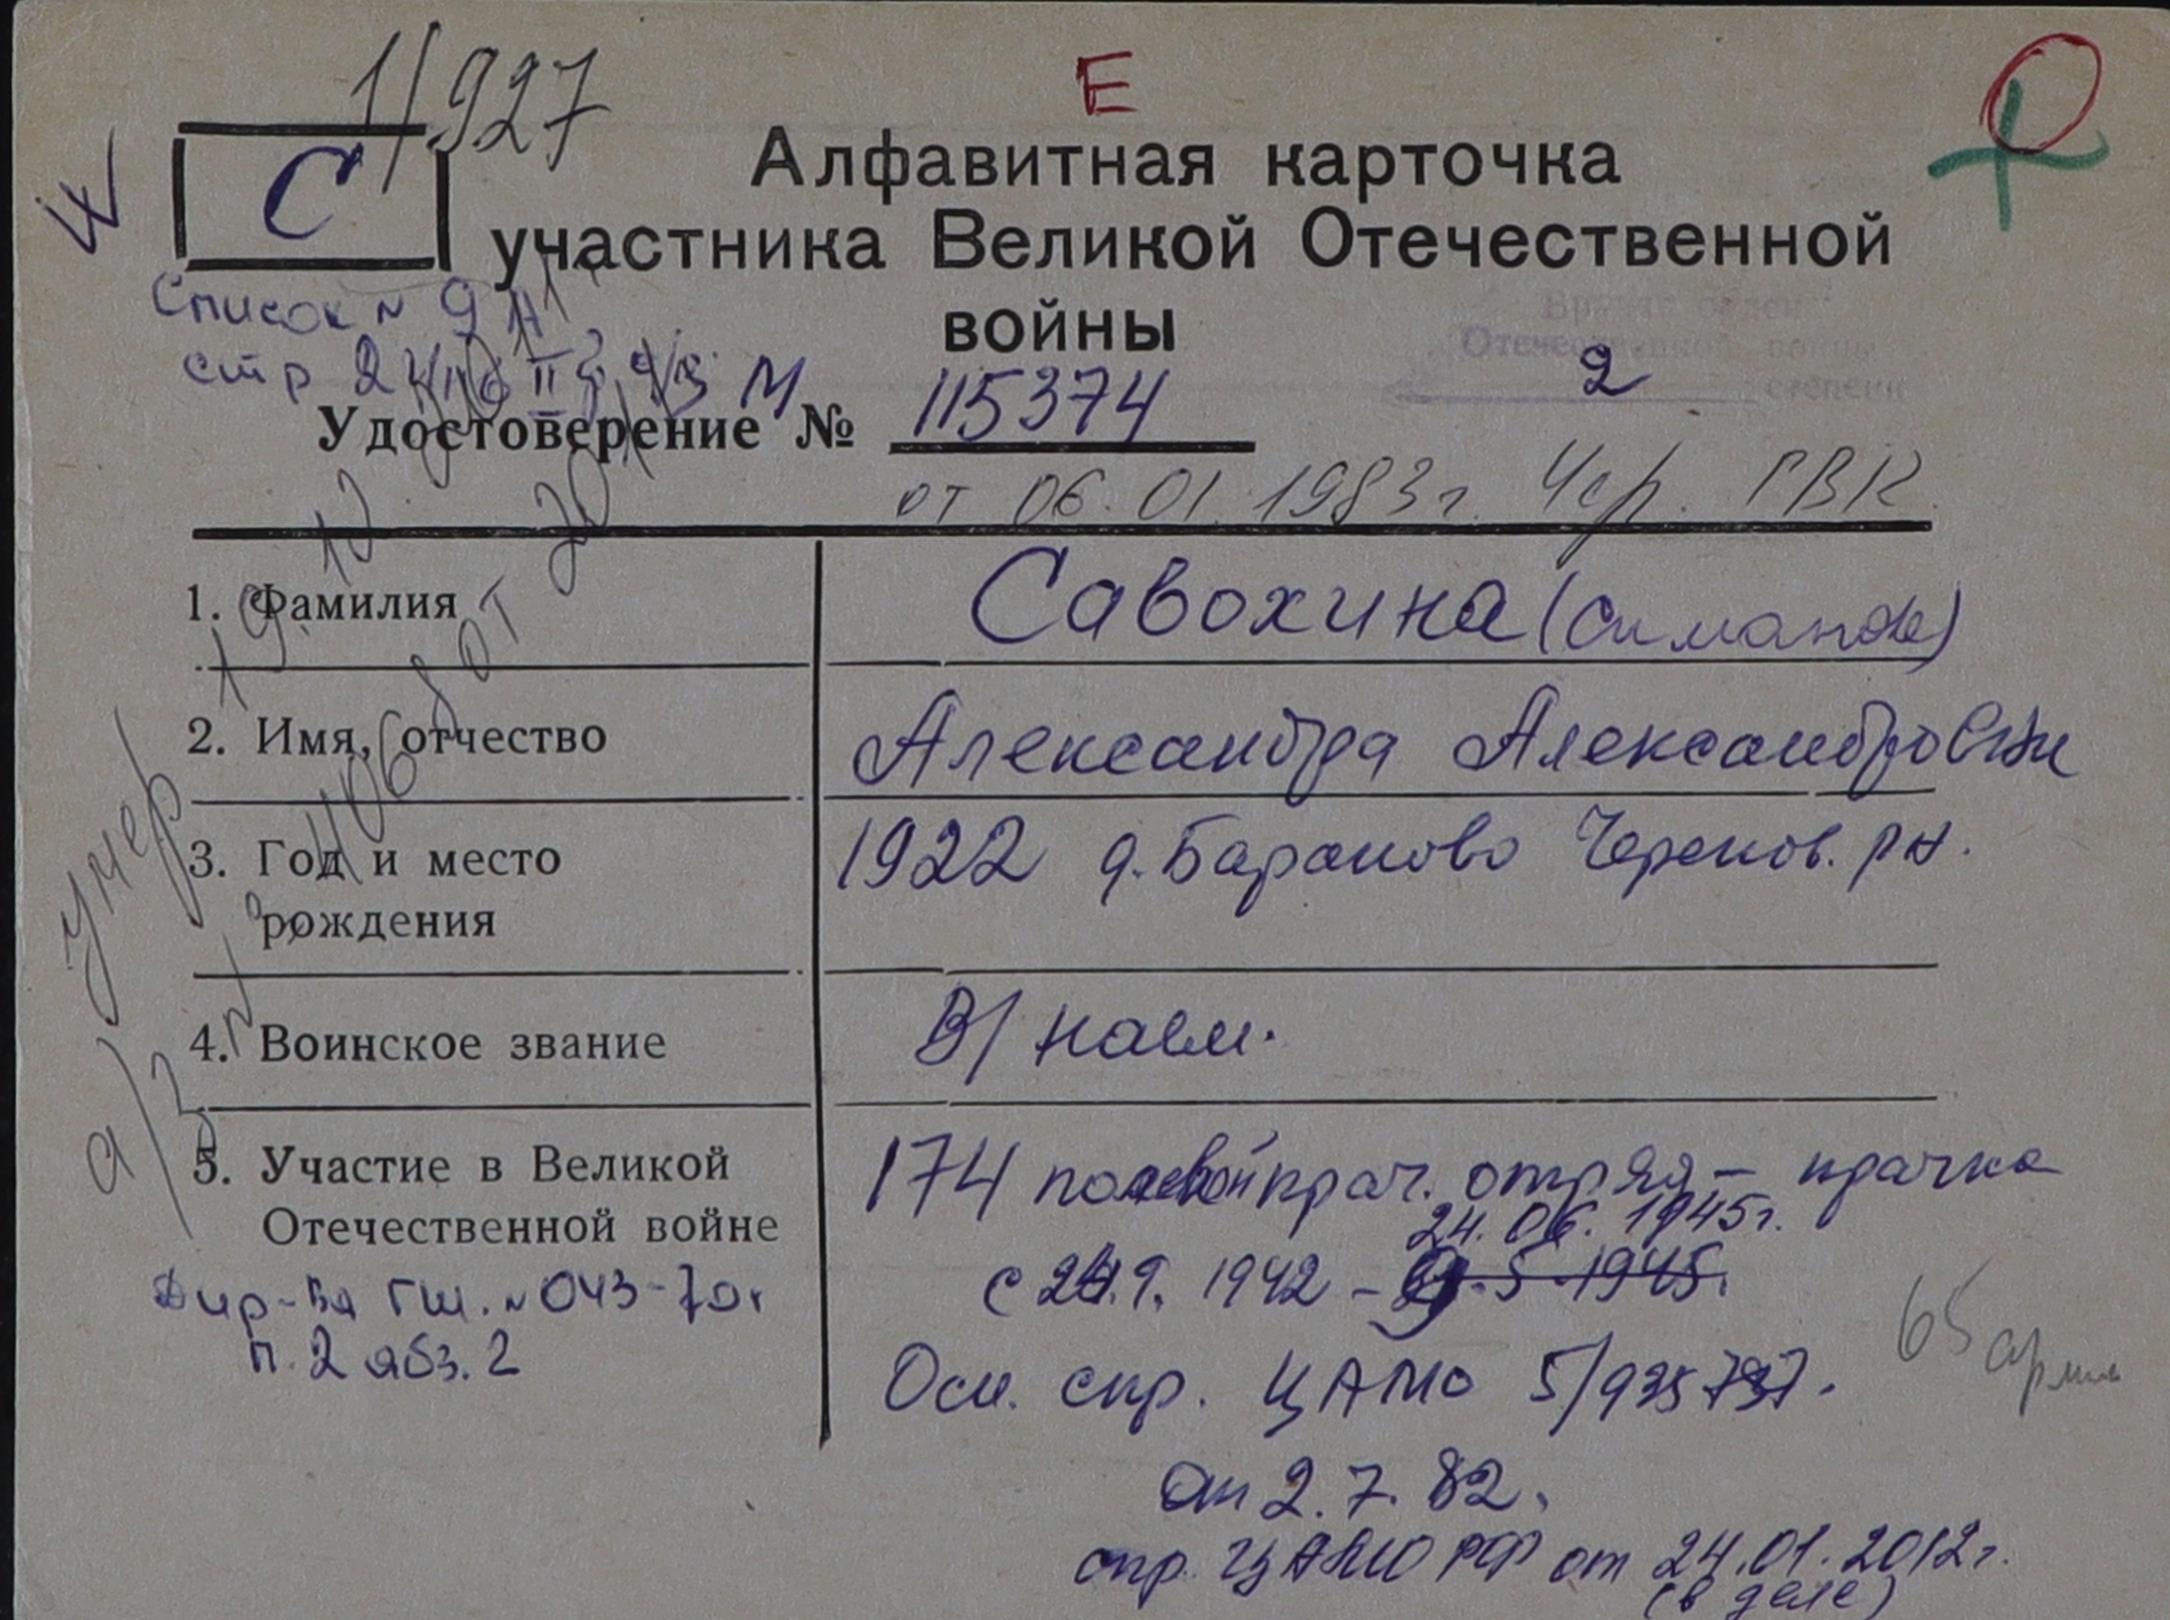 1/927
Е
С
Алфавитная карточка
участника Великой Отечественной
войны
Список № 9
стр 2
Вручен орден
Отечественной войны
2 степени
Удостоверение № 115374
от 06.01.1983г. Чер. ГВК
1. Фамилия Савохина
2. Имя, отчество Александра Александровна
3. Год и место 1922 д. Бараново Черепов. р-н.
рождения
4. Воинское звание В/наем.
5. Участие в Великой 174 полевой прач. отряд – прачка
Отечественной войне 24.06.1945г.
Дир-ва ГШ. № 043-70г
п. 2 абз. 2
1942 – 9.5.1945.
65 армия
Осн. спр. ЦАМО 5/935737.
от 2.7.82.
спр. ЦАМО РФ от 24.01.2012г.
(в деле)
умер
19.10
от
а/з №